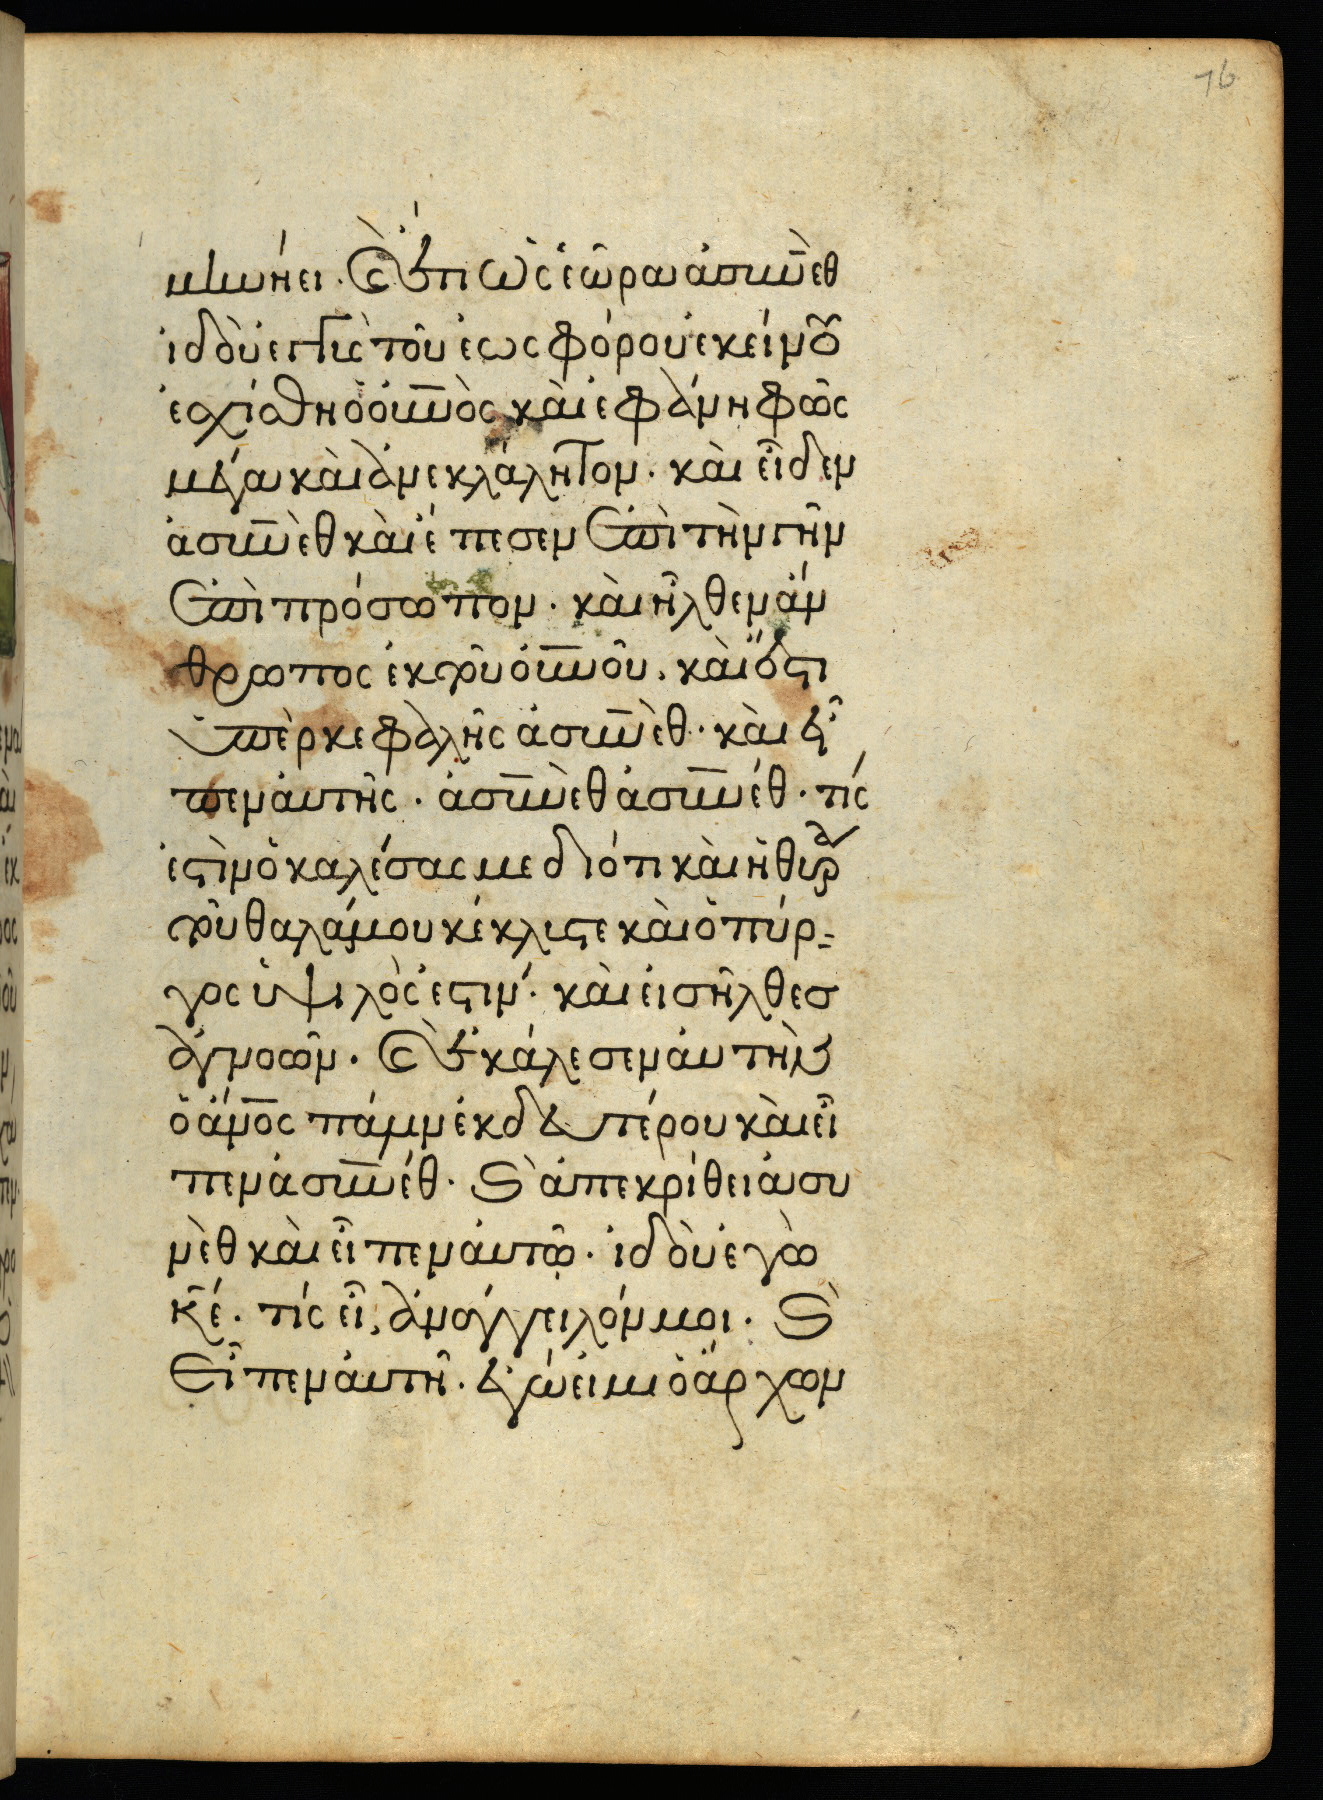 76
μεωνήει. Καὶ ἔτι ὡς ἑώρα ἀσυνὲθ
ἰδοὺ ἐγγὺς τοῦ ἑωσφόρου ἐκείνου
ἐσχίσθη ὁ οὐνὸς καὶ ἐφάνη φῶς
μέγα καὶ ἀνεκλάλητον. καὶ εἶδεν
ἀσυνὲθ καὶ ἔπεσεν ἐπὶ τὴν γῆν
ἐπὶ πρόσωπον. καὶ ἦλθεν ἄν
θρωπος ἐκ τοῦ οὐνοῦ. καὶ ἔστι
ὑπὲρ κεφαλῆς ἀσυνὲθ. καὶ εἶ
πεν αὐτῆς. ἀσυνὲθ ἀσυνέθ. τίς
ἐστὶν ὁ καλέσας με διότι καὶ ἡ θύρα
τοῦ θαλάμου κέκλιστε καὶ ὁ πύρ-
γος ὑψιλὸς ἐστιν. καὶ εἰσῆλθεσ
ἀγνοῶν. Καὶ ἐκάλεσεν αὐτὴν
ὁ ἄνος πάνν ἐκ δευτέρου καὶ εἶ
πεν ἀσυνέθ. Καὶ ἀπεκρίθει ἀσυ
νὲθ καὶ εἶπεν αὐτῷ. ἰδοὺ ἐγὼ
κέ. τίς εἶ, ἀνάγγειλόν μοι. Καὶ
Εἶπεν αὐτῆ. ἐγώ εἰμι ὁ ἄρχων